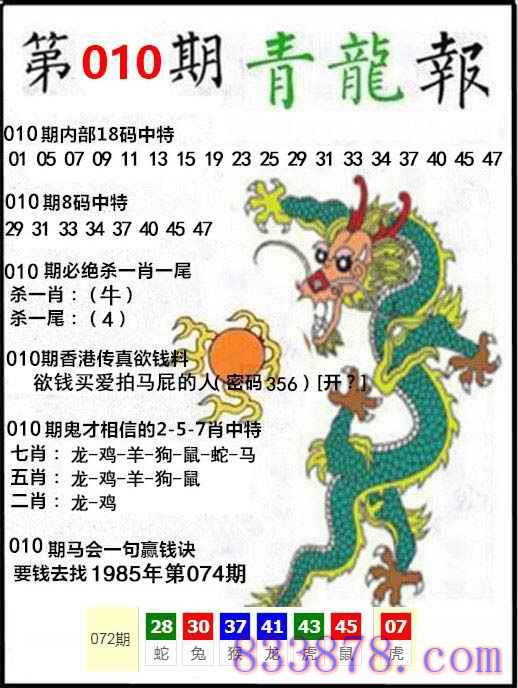 第010期青龍報
010期内部18码中特
01 05 07 09 11 13 15 19 23 25 29 31 33 34 37 40 45 47
010期8码中特
29 31 33 34 37 40 45 47
010期必绝杀一肖一尾
杀一肖:(牛)
杀一尾:(4)
010期香港传真欲钱料
欲钱买爱拍马屁的人(密码356)[开?]
010期鬼才相信的2-5-7肖中特
七肖:龙-鸡-羊-狗-鼠-蛇-马
五肖:龙-鸡-羊-狗-鼠
二肖:龙-鸡
010期马会一句赢钱诀
要钱去找1985年第074期
072期 28 30 37 41 43 45 07
蛇 兔 猴 龙 虎 鼠 虎
833878.com